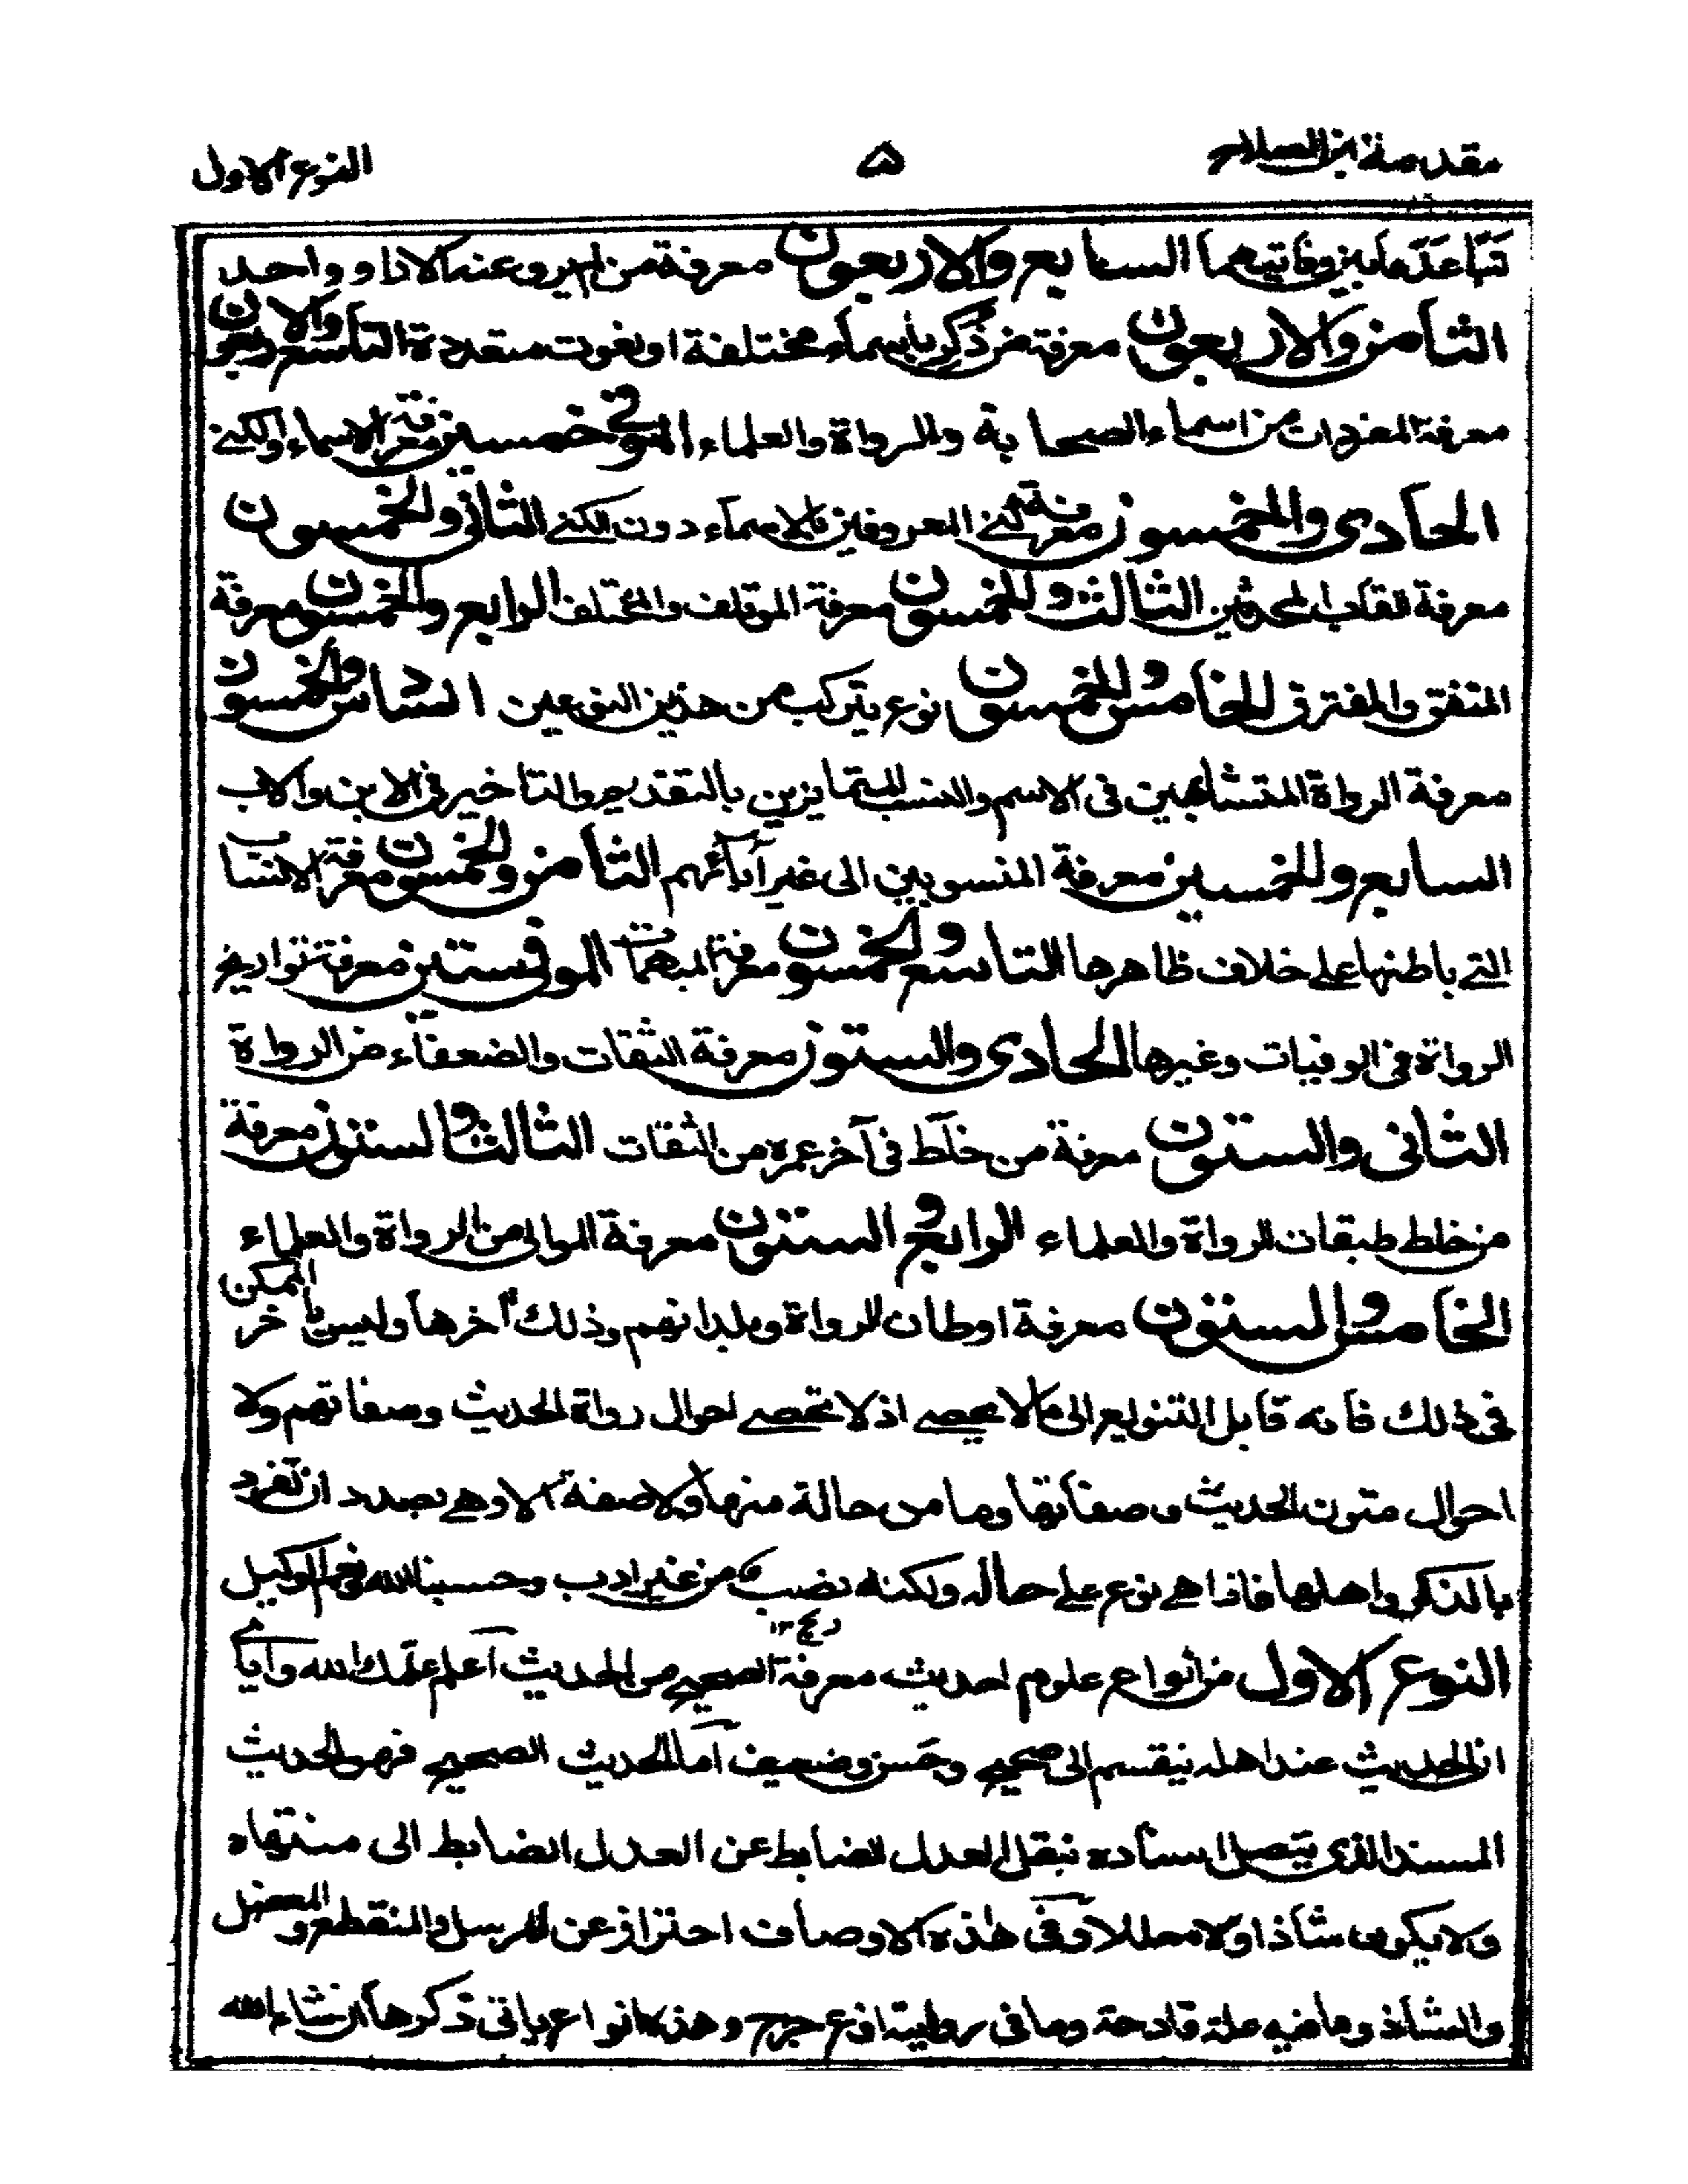 مقدمة ابن الصلاح ۵ النوع الاول
تباعد ما بين وفاتيهما السابع والاربعون معرفة من لم يرو عنه الا راو واحد
الثامن والاربعون معرفة من ذكر باسماء مختلفة او نعوت متعددة التاسع والاربعون
معرفة المفردات من اسماء الصحابة والرواة والعلماء الموفي خمسين معرفة الاسماء والكنى
الحادى والخمسون معرفة كنى المعروفين بالاسماء دون الكنى الثانى والخمسون
معرفة القاب المحدثين الثالث والخمسون معرفة المؤتلف والمختلف الرابع والخمسون معرفة
المتفق والمفترق الخامس والخمسون نوع يتركب من هذين النوعين السادس والخمسون
معرفة الرواة المتشابهين فى الاسم والنسب المتمايزين بالتقديم والتاخير فى الابن والاب
السابع والخمسين معرفة المنسوبين الى غير آبائهم الثامن والخمسون معرفة الانساب
التى باطنها على خلاف ظاهرها التاسع والخمسون معرفة المبهمات الموفى ستين معرفة تواريخ
الرواة فى الوفيات وغيرها الحادى والستون معرفة الثقات والضعفاء من الرواة
الثانى والستون معرفة من خلط فى آخر عمره من الثقات الثالث والستون معرفة
من خلط طبقات الرواة والعلماء الرابع والستون معرفة الموالى من الرواة والعلماء
الخامس والستون معرفة اوطان الرواة وبلدانهم وذلك آخرها وليس بآخر الممكن
فى ذلك فانه قابل التنويع الى مالا يحصى اذ لا تحصى احوال رواة الحديث وصفاتهم ولا
احوال متون الحديث وصفاتها وما من حالة منها ولا صفة الا وهى بصدد ان تفرد
بالذكر واهلها فاذا هى نوع على حاله ولكنه نصب من غير ادب وحسبنا الله ونعم الوكيل
النوع الاول من انواع علوم احديث معرفة الصحيح من الحديث اعلم علمك الله واياى
ان الحديث عند اهله ينقسم الى صحيح وحسن وضعيف اما الحديث الصحيح فهو الحديث
المسند الذى يتصل اسناده بنقل العدل الضابط عن العدل الضابط الى منتهاه
ولا يكون شاذا ولا معللا وفى هذه الاوصاف احتراز عن المرسل والمنقطع والمعضل
والشاذ وما فيه علة قادحة وما فى روايته نوع جرح وهذه انواع ياتى ذكرها ان شاء الله